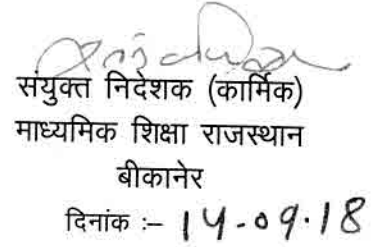 संयुक्त निदेशक (कार्मिक)
माध्यमिक शिक्षा राजस्थान
बीकानेर
दिनांक :– 14.09.18